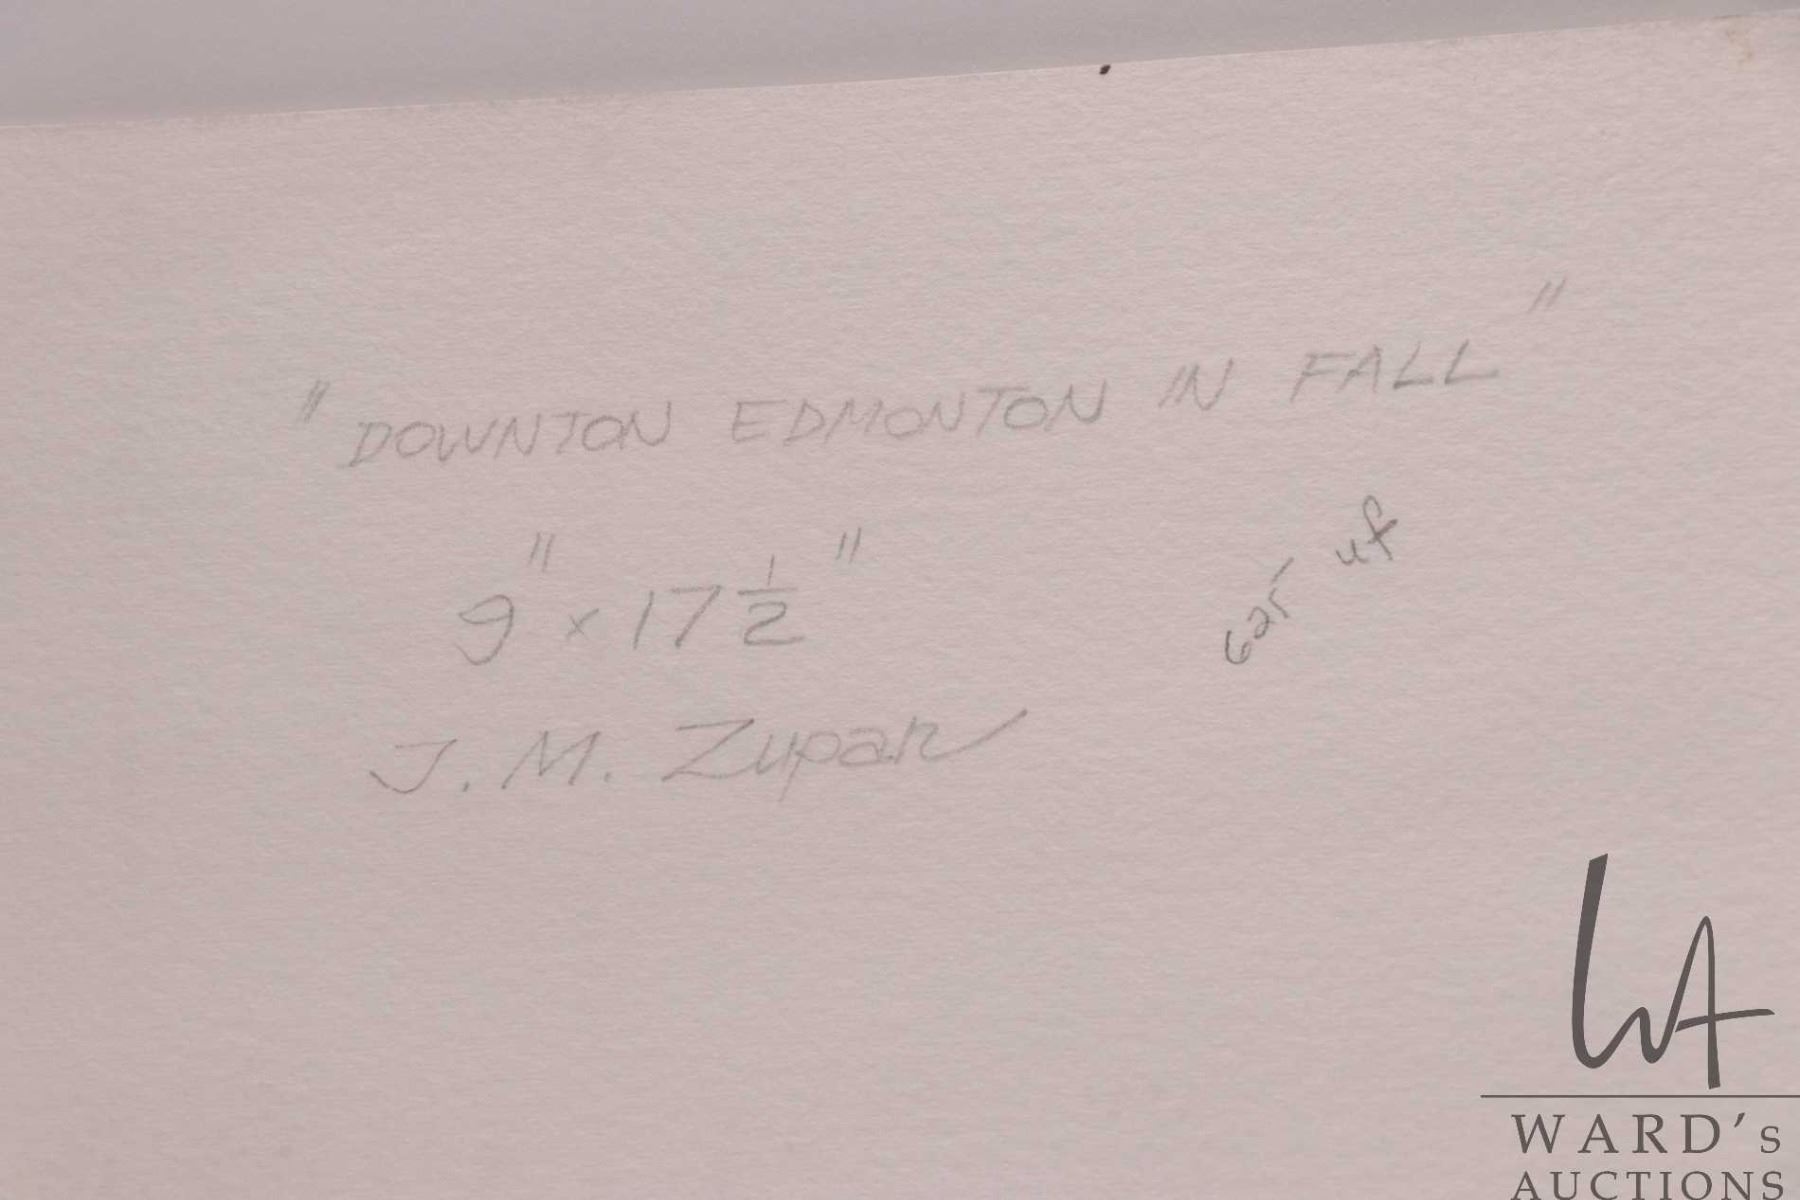 "DOWNTON EDMONTON IN FALL"
9" x 17 1/2"
J. M. Zupan
WARD's
AUCTIONS